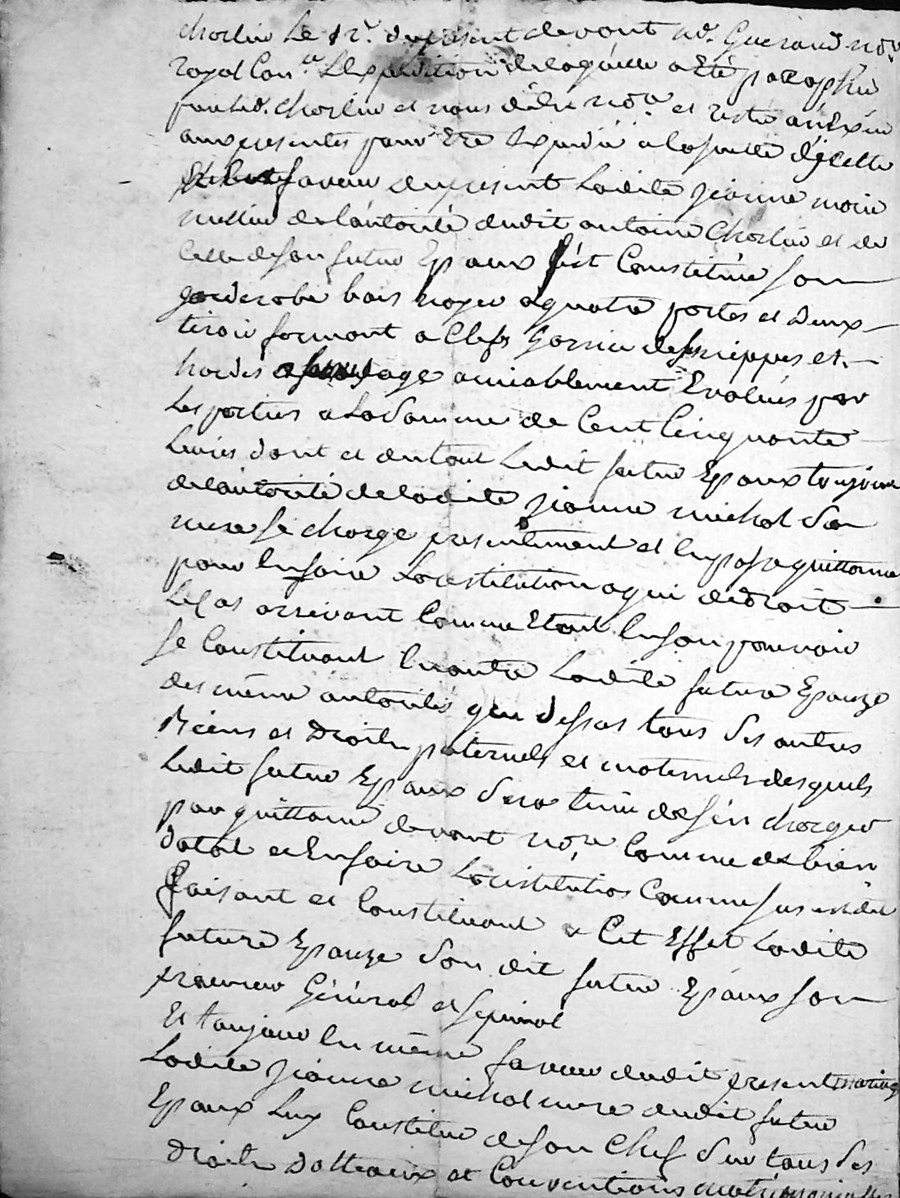 chorlin Le 12e. du present devant Me. Gueraud nore
royal Con.re L'Expedition de laquelle a Eté paraphée
par led. chorlin et nous d.it nore et restée anéxée
aux presentes pour Etre Expedié a la suitte d'icelle
faveur du present Ladite jeanne marie
de l'autorité dudit antoine Chorlin et de
Celle de son futur Epoux s'est Constituée son
garderobe bois noyer a quatre portes et deux
tiroir formant a Clefs Garnie de ses nippes et
hardes amiablement Evalués par
Les parties a La somme de Cent Cinquante
Livres dont et du tout Ledit futur Epoux toujours
de l'autorité de ladite jeanne michol sa
mere se charge presentement et En passe quittance
pour En faire La restitution a qui de droit
Le Cas arrivant Comme Etant En son pouvoir
se Constituant En outre Ladite future Epouze
des même autorités que dessus tous ses autres
Biens et Droits paternels et maternels desquels
Ledit futur Epoux sera tenu de s'en charger
par quittance devant nore Comme de bien
dotal et En faire La restitution Comme sus est dit
faisant et Constituant a Cet Effet Ladite
future Epouze son dit futur Epoux son
procureur Général et special
Et toujours En même faveur dudit present mariage
Ladite jeanne michol mere dudit futur
Epoux Luy Constitue de son Chef sur tous ses
Droits Dotteaux et Conventions matrimonielles